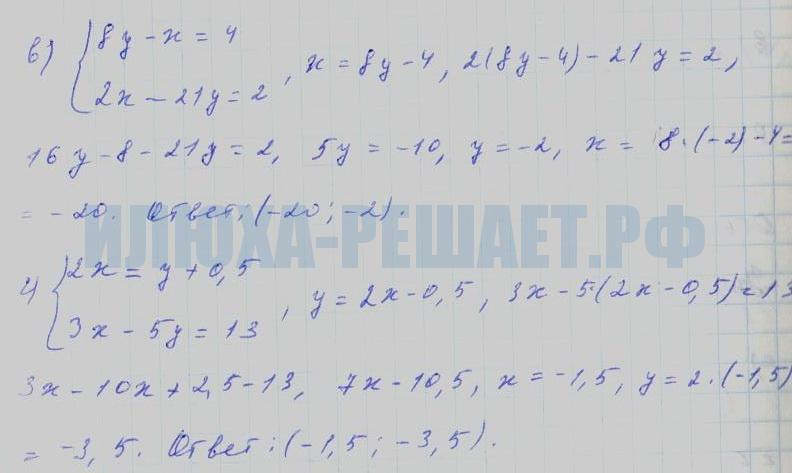 в) { 8y - x = 4
2x - 21y = 2 , x = 8y - 4, 2(8y - 4) - 21y = 2,
16y - 8 - 21y = 2, 5y = -10, y = -2, x = 8·(-2) - 4 =
= -20. Ответ: (-20; -2).
ИЛЮХА-РЕШАЕТ.РФ
г) { 2x = y + 0,5
3x - 5y = 13 , y = 2x - 0,5, 3x - 5(2x - 0,5) = 13
3x - 10x + 2,5 - 13, 7x - 10,5, x = -1,5, y = 2·(-1,5)
= -3,5. Ответ: (-1,5; -3,5).